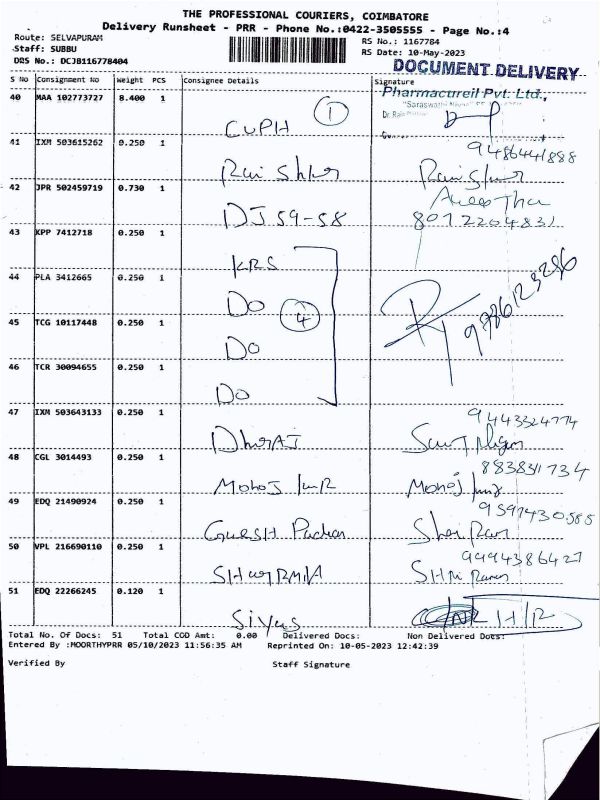 THE PROFESSIONAL COURIERS, COIMBATORE
Delivery Runsheet - PRR - Phone No.:0422-3505555 - Page No.:4
Route: SELVAPURAM RS No.: 1167784
Staff: SUBBU RS Date: 10-May-2023
DRS No.: DCJB116778404 DOCUMENT DELIVERY
S No Consignment No Weight PCS Consignee Details Signature
Pharmacureil Pvt. Ltd.,
40 MAA 102773727 8.400 1 CUPH 1
41 IXM 503615262 0.250 1 9486441888
42 JPR 502459719 0.730 1 DJ 59-58 8072204831
43 KPP 7412718 0.250 1 KRS
44 PLA 3412665 0.250 1 DO 4 9786123286
45 TCG 10117448 0.250 1 DO
46 TCR 30094655 0.250 1 DO
47 IXM 503643133 0.250 1 DhirAJ 9443324774
48 CGL 3014493 0.250 1 Mohoj 8838311734
Mohoj
49 EDQ 21490924 0.250 1 9597430585
50 VPL 216690110 0.250 1 9994386427
51 EDQ 22266245 0.120 1 H/R
Total No. Of Docs: 51 Total COD Amt: 0.00 Delivered Docs: Non Delivered Docs:
Entered By :MOORTHYPRR 05/10/2023 11:56:35 AM Reprinted On: 10-05-2023 12:42:39
Verified By Staff Signature